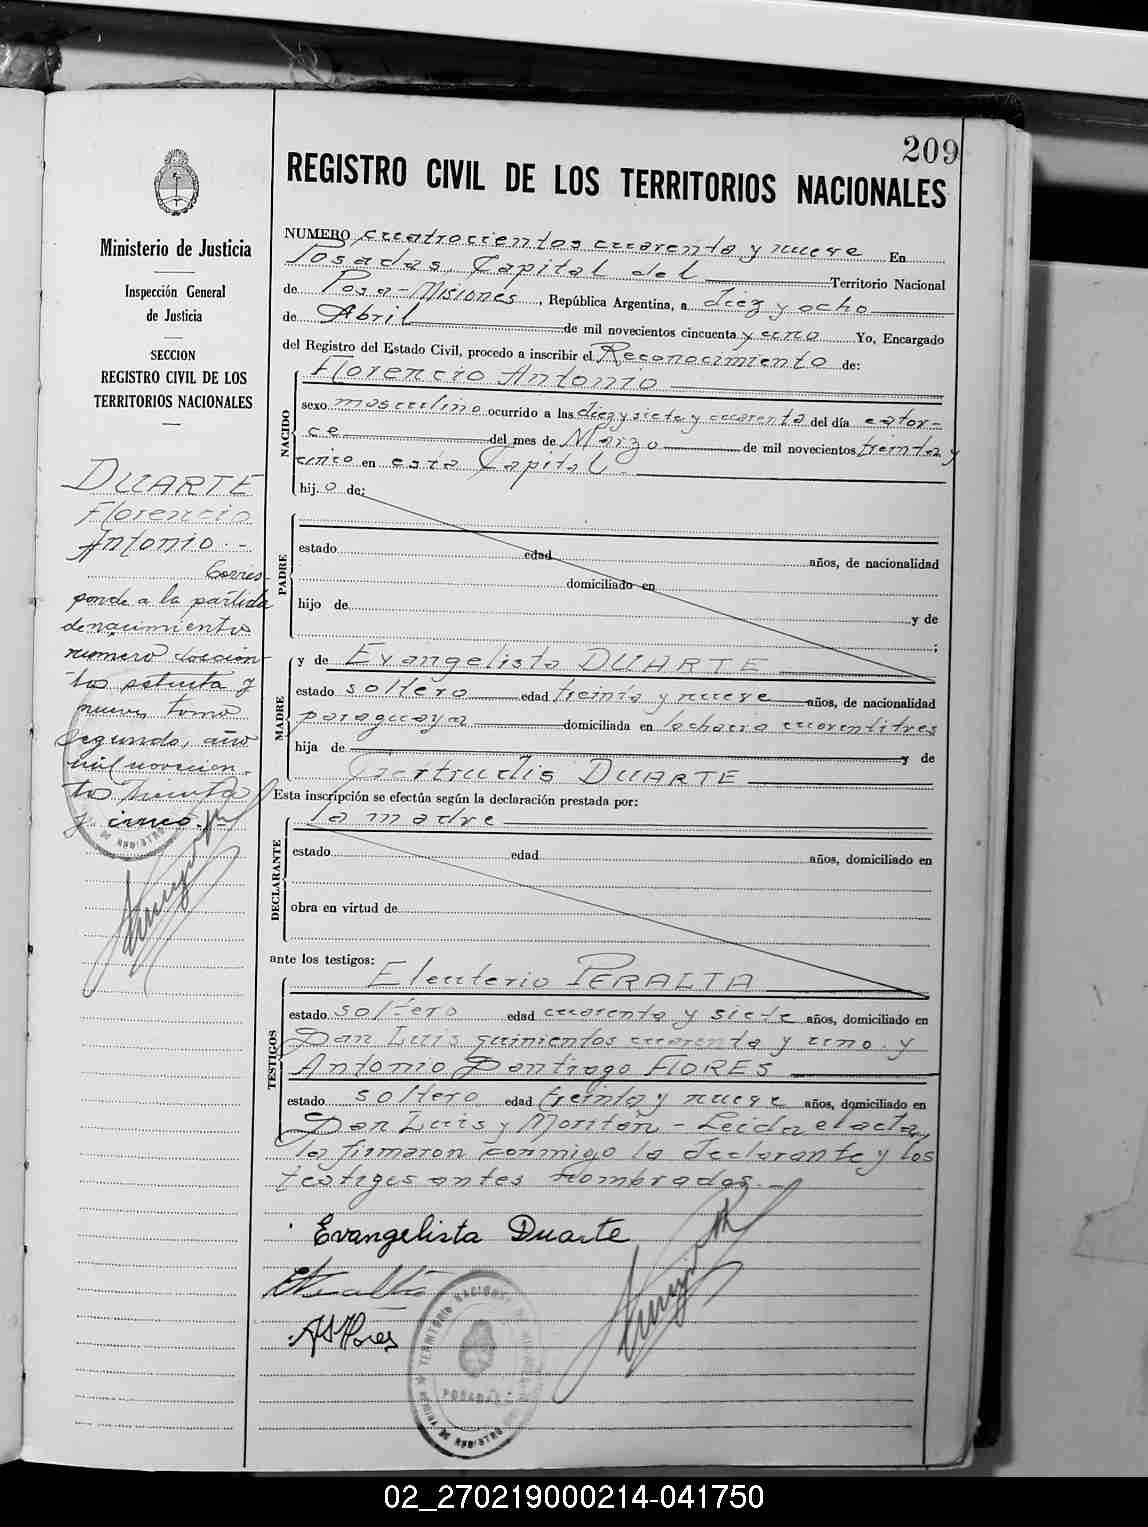 209
REGISTRO CIVIL DE LOS TERRITORIOS NACIONALES
Ministerio de Justicia
Inspección General
de Justicia
SECCION
REGISTRO CIVIL DE LOS
TERRITORIOS NACIONALES
DUARTE
Florencio
Antonio.-
Corres-
ponde a la partida
de nacimiento
número doscien-
tos setenta y
nueve, tomo
segundo, año
mil novecien-
tos treinta
y cinco.-
NUMERO cuatrocientos cuarenta y nueve En
Posadas, Capital del Territorio Nacional
de Posa-Misiones, República Argentina, a diez y ocho
de Abril de mil novecientos cincuenta y uno Yo, Encargado
del Registro del Estado Civil, procedo a inscribir el Reconocimiento de:
Florencio Antonio
NACIDO
sexo masculino ocurrido a las diez y siete y cuarenta del día cator-
ce del mes de Marzo de mil novecientos treinta y
cinco en esta Capital.
hijo de:
PADRE
estado edad años, de nacionalidad
domiciliado en
hijo de y de
;
MADRE
y de Evangelista DUARTE
estado soltero edad treinta y nueve años, de nacionalidad
paraguaya domiciliada en la chacra cuarentitres
hija de y de
Gertrudis DUARTE
Esta inscripción se efectúa según la declaración prestada por:
la madre
DECLARANTE
estado edad años, domiciliado en
obra en virtud de
ante los testigos:
Eleuterio PERALTA
TESTIGOS
estado soltero edad cuarenta y siete años, domiciliado en
San Luis quinientos cuarenta y uno. y
Antonio Santiago FLORES
estado soltero edad treinta y nueve años, domiciliado en
San Luis y Moritán - Leida el acta,
la firmaron conmigo la declarante y los
testigos antes nombrados.-
Evangelista Duarte
EPeralta
ASFlores
POSADAS
02_270219000214-041750